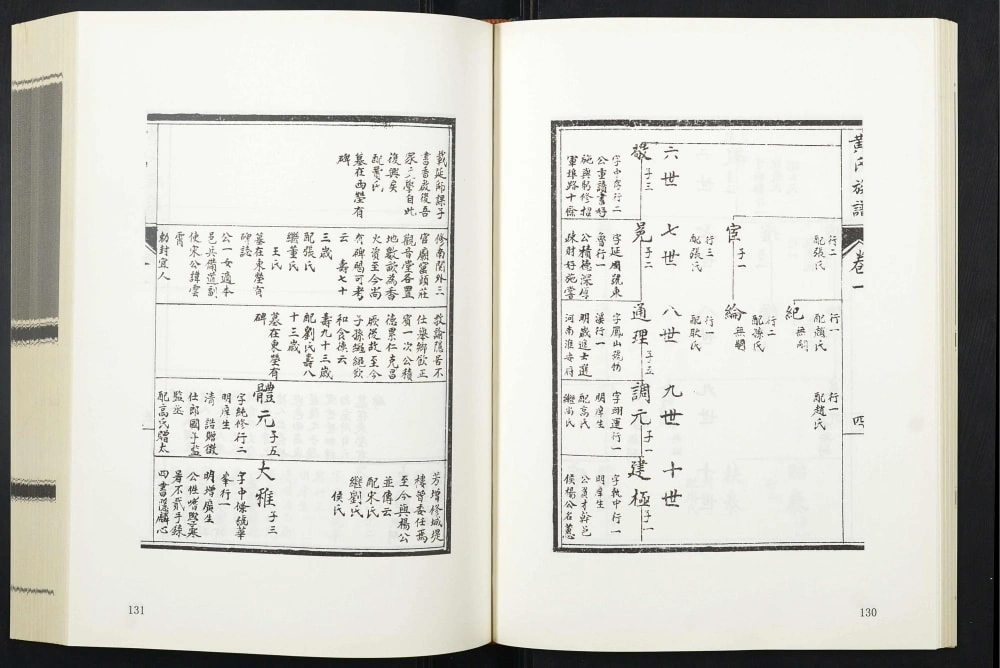 黃氏族譜
卷一
四
行二
配張氏
行一
配趙氏
無嗣
紀
行一
配趙氏
宦
子一
行三
配張氏
行二
配孫氏
無嗣
綸
行一
配耿氏
六世
七世
八世
九世
十世
敬
子三
字中孚行二
公重讀書好
施與舁修招
軍埠路十餘
邑
子二
字延周號東
魯行一
公積德深厚
疎財好施嘗
通理
子五
字鳳山號竹
溪行一
明歲進士選
河南淮安府
調元
子一
字翊運行一
明庠生
配高氏
繼尚氏
建極
子一
字執中行一
明庠生
公具才幹邑
侯楊公名蕙
載延師課子
書香啟後吾
家之學自此
復興矣
配賈氏
墓在西塋有
碑
修南關外三
官廟窰頭莊
觀音堂各置
地數畝為香
火資至今尚
有碑碣可考
云 壽七十
三歲
配張氏
繼董氏
王氏
墓在東塋有
碑誌
公一女適本
邑兵備道副
使宋公緯雲
霄
勅封宜人
教諭隱居不
仕舉鄉飲正
賓一次公積
德累仁克昌
厥後故至今
子孫繼繩飲
和食德云
壽九十三歲
配劉氏壽八
十三歲
墓在東塋有
碑
體元
子五
字純修行二
明庠生
清 誥贈徵
仕郎國子監
監丞
配高氏贈太
芳增修城堤
樓曾委任焉
至今與楊公
並傳云
配宋氏
繼劉氏
侯氏
大雅
子三
字中條號華
峯行一
明增廣生
公性嗜學寒
暑不輟手錄
四書
130
131